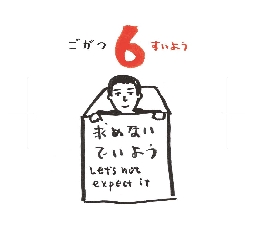 ごがつ 6 すいよう
求めない
でいよう
Let's not
expect it